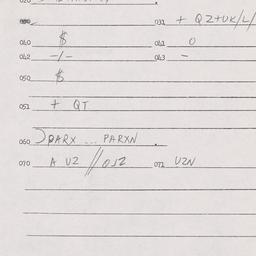 031 + QZ+UK/L/
040 $ 041 0
042 -/- 043 -
050 $
051 + QT
060 PARX ... PARXN .
070 A UZ // OSZ 071 UZN